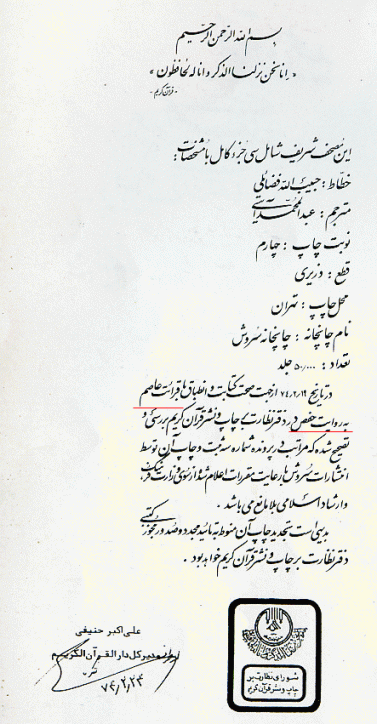 بسم الله الرحمن الرحیم
«انا نحن نزلنا الذکر و انا له لحافظون»
-قرآن کریم-
این مصحف شریف شامل سی جزء کامل با مشخصات:
خطاط: حبیب الله فضائلی
مترجم: عبدالمحمد آیتی
نوبت چاپ: چهارم
قطع: وزیری
محل چاپ: تهران
نام چاپخانه: چاپخانه سروش
تعداد: ۵۰،۰۰۰ جلد
در تاریخ ۷۴/۲/۱۹ از جهت صحت کتابت و انطباق با قرائت عاصم
به روایت حفص در دفتر نظارت بر چاپ و نشر قرآن کریم بررسی و
تصحیح شده که مراتب در پرونده شماره سه ثبت و چاپ آن توسط
انتشارات سروش با رعایت مقررات اعلام شده از سوی وزارت فرهنگ
و ارشاد اسلامی بلامانع می باشد.
بدیهی است تجدید چاپ آن منوط به تائید مجدد و صدور مجوز کتبی
دفتر نظارت بر چاپ و نشر قرآن کریم خواهد بود.
علی اکبر حنیفی
مدیر کل دار القرآن الکریم
۷۴/۲/۲۴
شورای نظارت بر
چاپ و نشر قرآن کریم